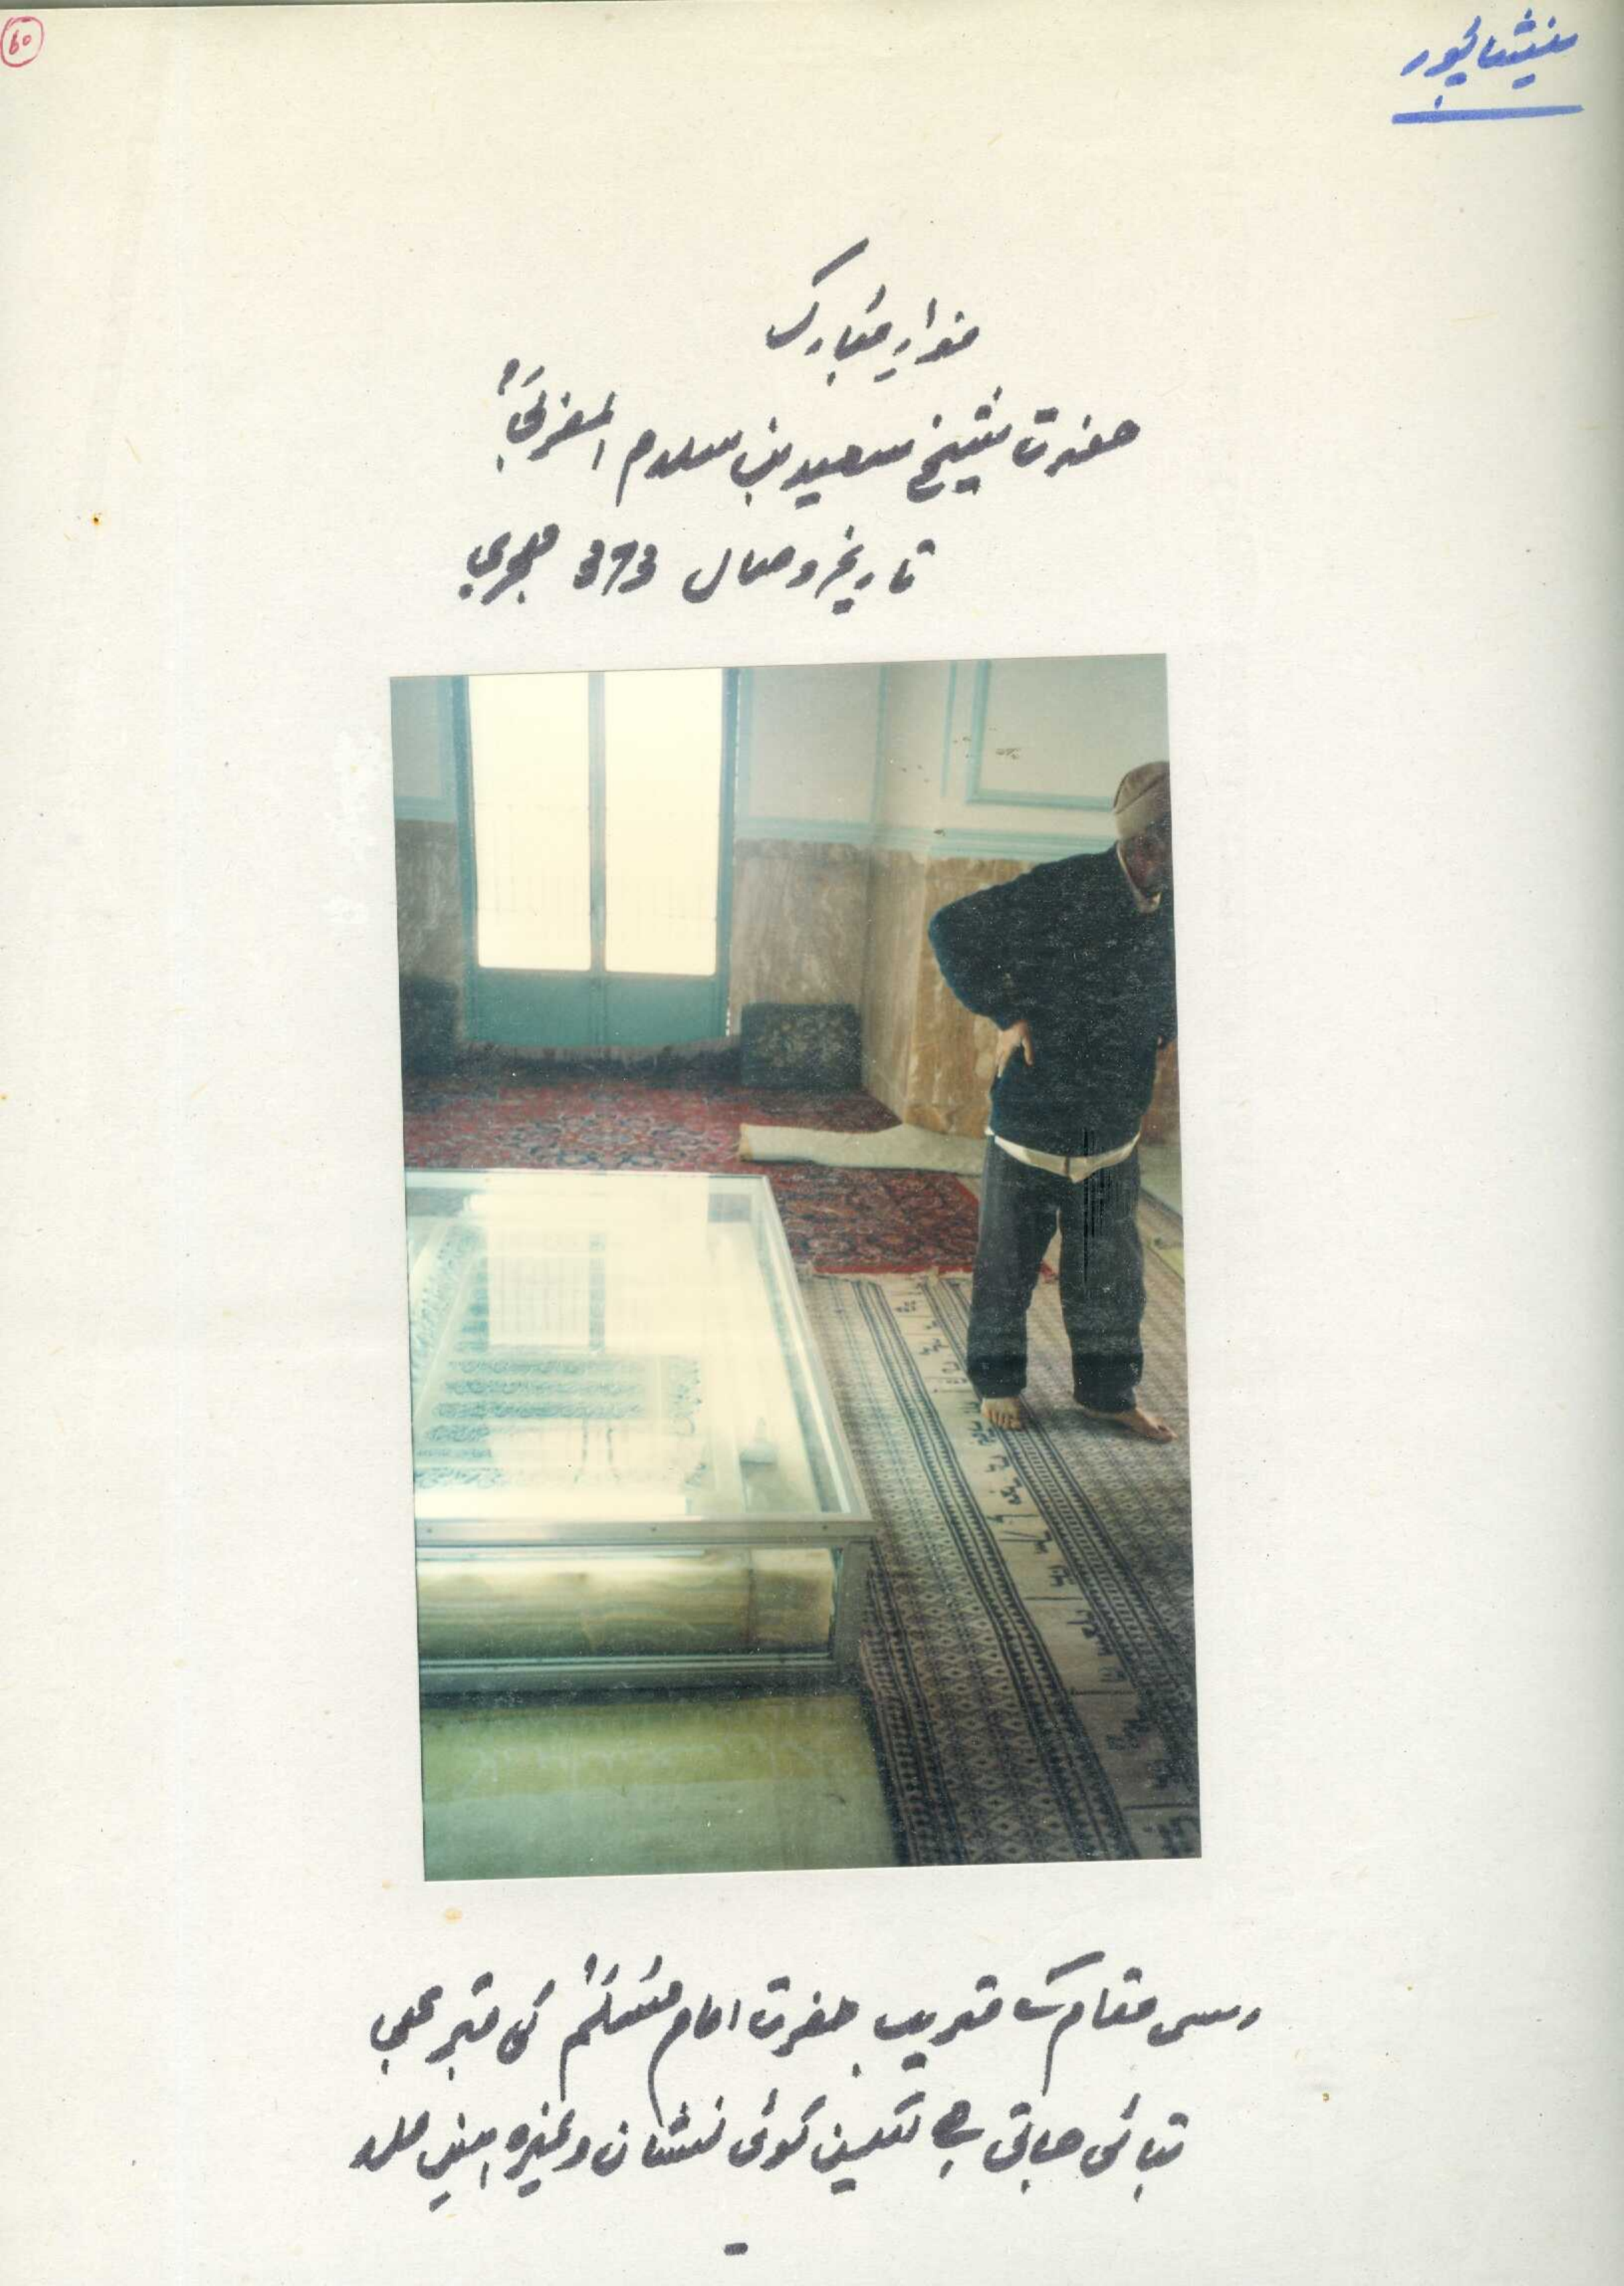 نیشاپور
۶۰
مزار مُبارک
حضرت شیخ سعید بن سلام المغربیؒ
تاریخ وصال 373 ہجری
اسی مقام کے قریب حضرت امام مُسلمؒ کی قبر بھی
بتائی جاتی ہے لیکن کوئی نشان وغیرہ نہیں ملا
-